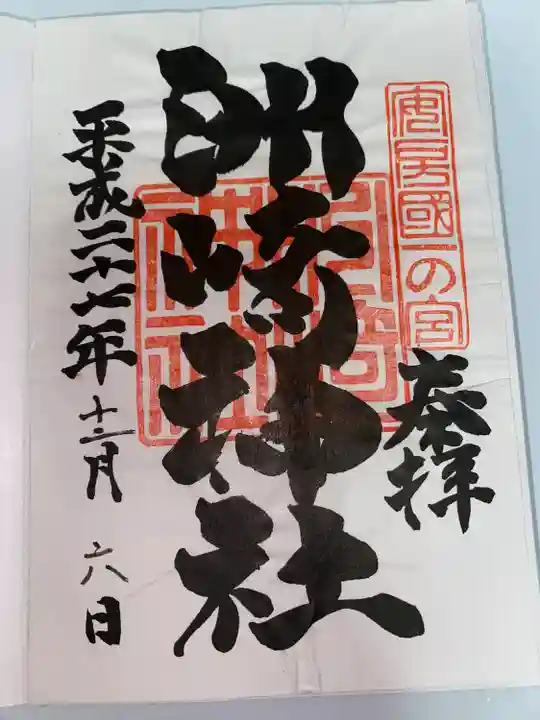 安房國一の宮
奉拝
洲崎神社
洲崎神社
平成二十七年十二月六日